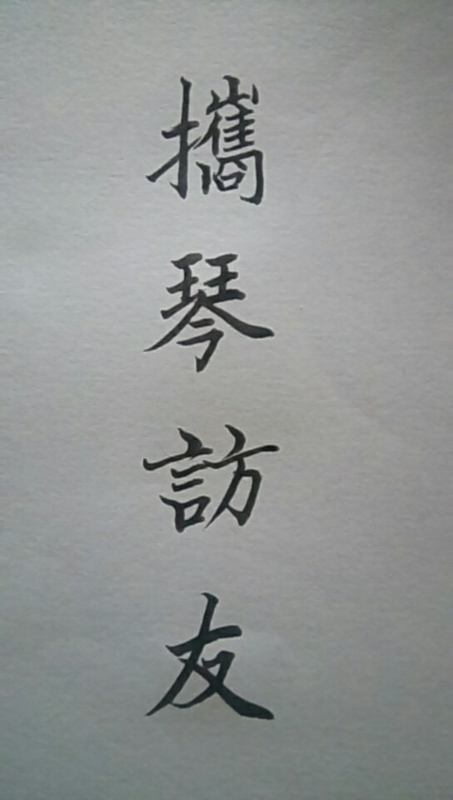 攜琴訪友